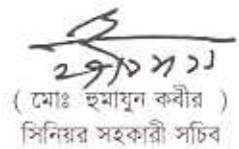 ( মোঃ হুমায়ুন কবীর )
সিনিয়র সহকারী সচিব